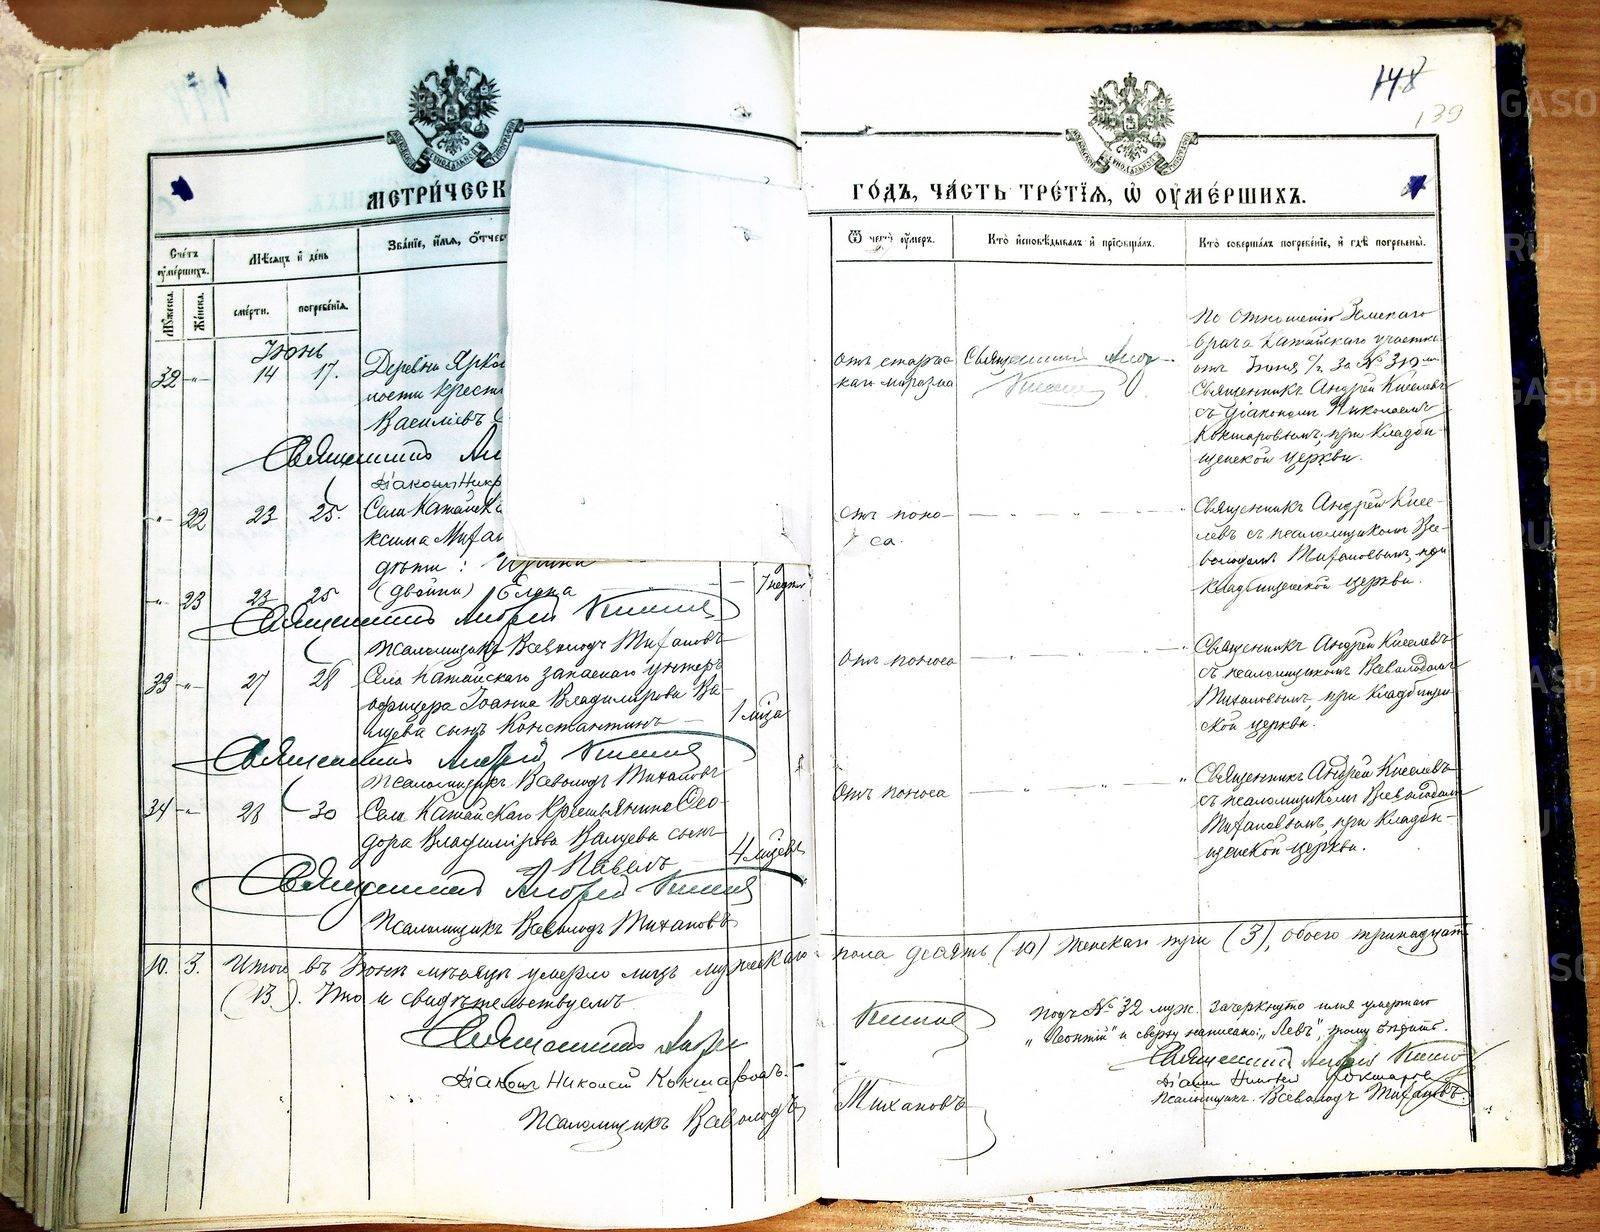 148
139
МЕТРИ́ЧЕСК
ГО́ДЪ, ЧА́СТЬ ТРЕ́ТІЯ, Ѿ ОУМЕ́РШИХЪ.
Сче́тъ оуме́ршихъ.
Мѣсяцъ и де́нь
Зва́ніе, и́мя, о́тчес
Ѿ чегѡ̀ оу́меръ.
Кто̀ исповѣ́дывалъ и пріобща́лъ.
Кто̀ соверша́лъ погребе́ніе, и гдѣ̀ погребены̀.
Му́жеска.
Же́нска.
сме́рти.
погребе́нія.
Іюнь
32 - " - 14 17.
Деревни Ярко
ности крест
Василіевъ
Священникъ Ан
Діаконъ Нико
отъ старче
скаго маразма
Священникъ Андр
Киселев
По отношенію Земскаго
врача Катайскаго участка
отъ Іюня за № 319
Священникъ Андрей Киселевъ
съ діакономъ Николаемъ
Кокшаровымъ, при Кладби
щенской церкви.
- " - 22 23 25.
Села Катайск
ксима Михаи
дѣти: Ирина
" 23 23 25
(двойни) Елена
7 недѣл
Священникъ Андрей Киселев
Псаломщикъ Всеволодъ Тихановъ
отъ поно-
са.
Священникъ Андрей Кисе-
левъ съ псаломщикомъ Все-
володомъ Тихановымъ, при
Кладбищенской церкви.
33 - " - 27 28
Села Катайскаго запаснаго унтеръ
офицера Іоанна Владимірова Ва-
щева сынъ Константинъ
1 мѣсца
Священникъ Андрей Киселев
Псаломщикъ Всеволодъ Тихановъ
Отъ поноса
Священникъ Андрей Киселевъ
съ псаломщикомъ Всеволодомъ
Тихановымъ, при Кладбищен-
ской церкви.
34 - " - 28 30
Села Катайскаго крестьянина Ѳео-
дора Владимірова Ващева сынъ
Павелъ
4 мѣсцевъ
Священникъ Андрей Киселев
Псаломщикъ Всеволодъ Тихановъ
Отъ поноса
Священникъ Андрей Киселевъ
съ псаломщикомъ Всеволодомъ
Тихановымъ, при Кладби-
щенской церкви.
10. 3. Итого въ Іюнѣ мѣсяцѣ умерло лицъ мужескаго пола десять (10) женскаго три (3), обоего тринадцать
(13). Что и свидѣтельствуемъ
Священникъ Андрей Киселев
Діаконъ Николай Кокшаровъ.
Псаломщикъ Всеволодъ Тихановъ
Подъ № 32 муж. зачеркнуто имя умершаго
„Леонтій" и сверху написано: „Левъ", тому вѣрить.
Священникъ Андрей Киселев
Діаконъ Николай Кокшаров
Псаломщикъ Всеволодъ Тихановъ.